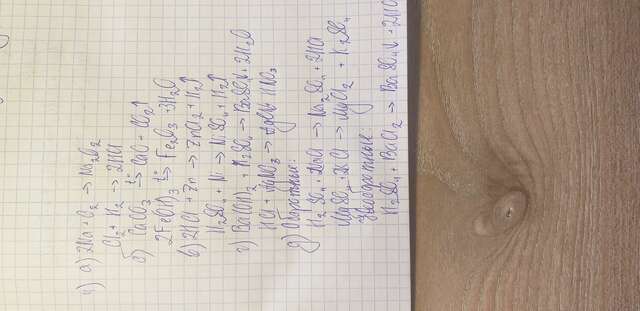 4) а) 2Na + O₂ → Na₂O₂
Cl₂ + H₂ → 2HCl
б) CaCO₃ t°→ CaO + CO₂↑
2Fe(OH)₃ t°→ Fe₂O₃ + 3H₂O
в) 2HCl + Zn → ZnCl₂ + H₂↑
H₂SO₄ + Ni → NiSO₄ + H₂↑
г) Ba(OH)₂ + H₂SO₄ → BaSO₄↓ + 2H₂O
HCl + AgNO₃ → AgCl↓ + HNO₃
д) Обратимые:
H₂SO₄ + 2NaCl → Na₂SO₄ + 2HCl
MgSO₄ + 2KCl → MgCl₂ + K₂SO₄
Необратимые
H₂SO₄ + BaCl₂ → BaSO₄↓ + 2HCl